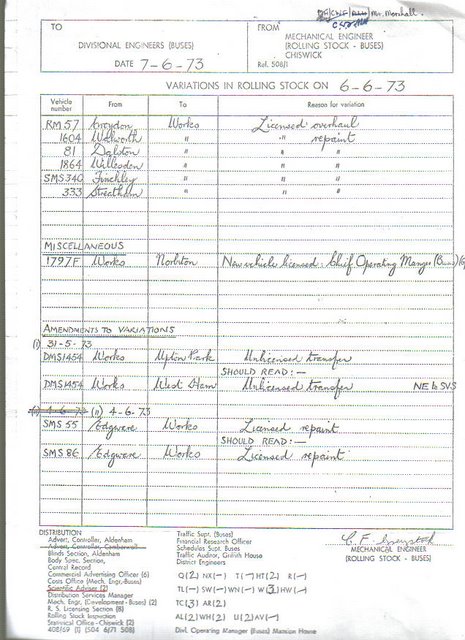 Mr. Marshall.
TO
DIVISIONAL ENGINEERS (BUSES)
DATE 7-6-73
FROM
MECHANICAL ENGINEER
(ROLLING STOCK - BUSES)
CHISWICK
Ref. 508/1
VARIATIONS IN ROLLING STOCK ON 6-6-73
Vehicle number From To Reason for variation
RM 57 Croydon Works Licensed overhaul
1604 Walworth " " repaint
81 Dalston " " "
1864 Willesden " " "
SMS 340 Finchley " " "
333 Streatham " " "
MISCELLANEOUS
1797F Works Norbiton New vehicle licensed: Chief Operating Manger (Buses)
AMENDMENTS TO VARIATIONS
(i) 31-5-73
DMS1454 Works Upton Park Unlicensed transfer
SHOULD READ:-
DMS1454 Works West Ham Unlicensed transfer NE to SVS
(i) 4-6-73 (ii) 4-6-73
SMS 55 Edgware Works Licensed repaint
SHOULD READ:-
SMS 86 Edgware Works Licensed repaint
DISTRIBUTION
Advert. Controller, Aldenham
Advert. Controller, Camberwell
Blinds Section, Aldenham
Body Spec. Section,
Central Record
Commercial Advertising Officer (6)
Costs Office (Mech. Engr.-Buses)
Scientific Adviser (2)
Distribution Services Manager
Mech. Engr. (Development - Buses) (2)
R. S. Licensing Section (8)
Rolling Stock Inspection
Statistical Office - Chiswick (2)
408/69 (1) (504 6/71 508)
Traffic Supt. (Buses)
Financial Research Officer
Schedules Supt. Buses
Traffic Auditor, Griffith House
District Engineers
Q(2) NX(-) T(-) HT(2) R(-)
TL(-) SW(-) WN(-) W(3) HW(-)
TC(3) AR(2)
AL(2) WH(2) U(2) AV(-)
Divl. Operating Manager (Buses) Mansion House
MECHANICAL ENGINEER
(ROLLING STOCK - BUSES)